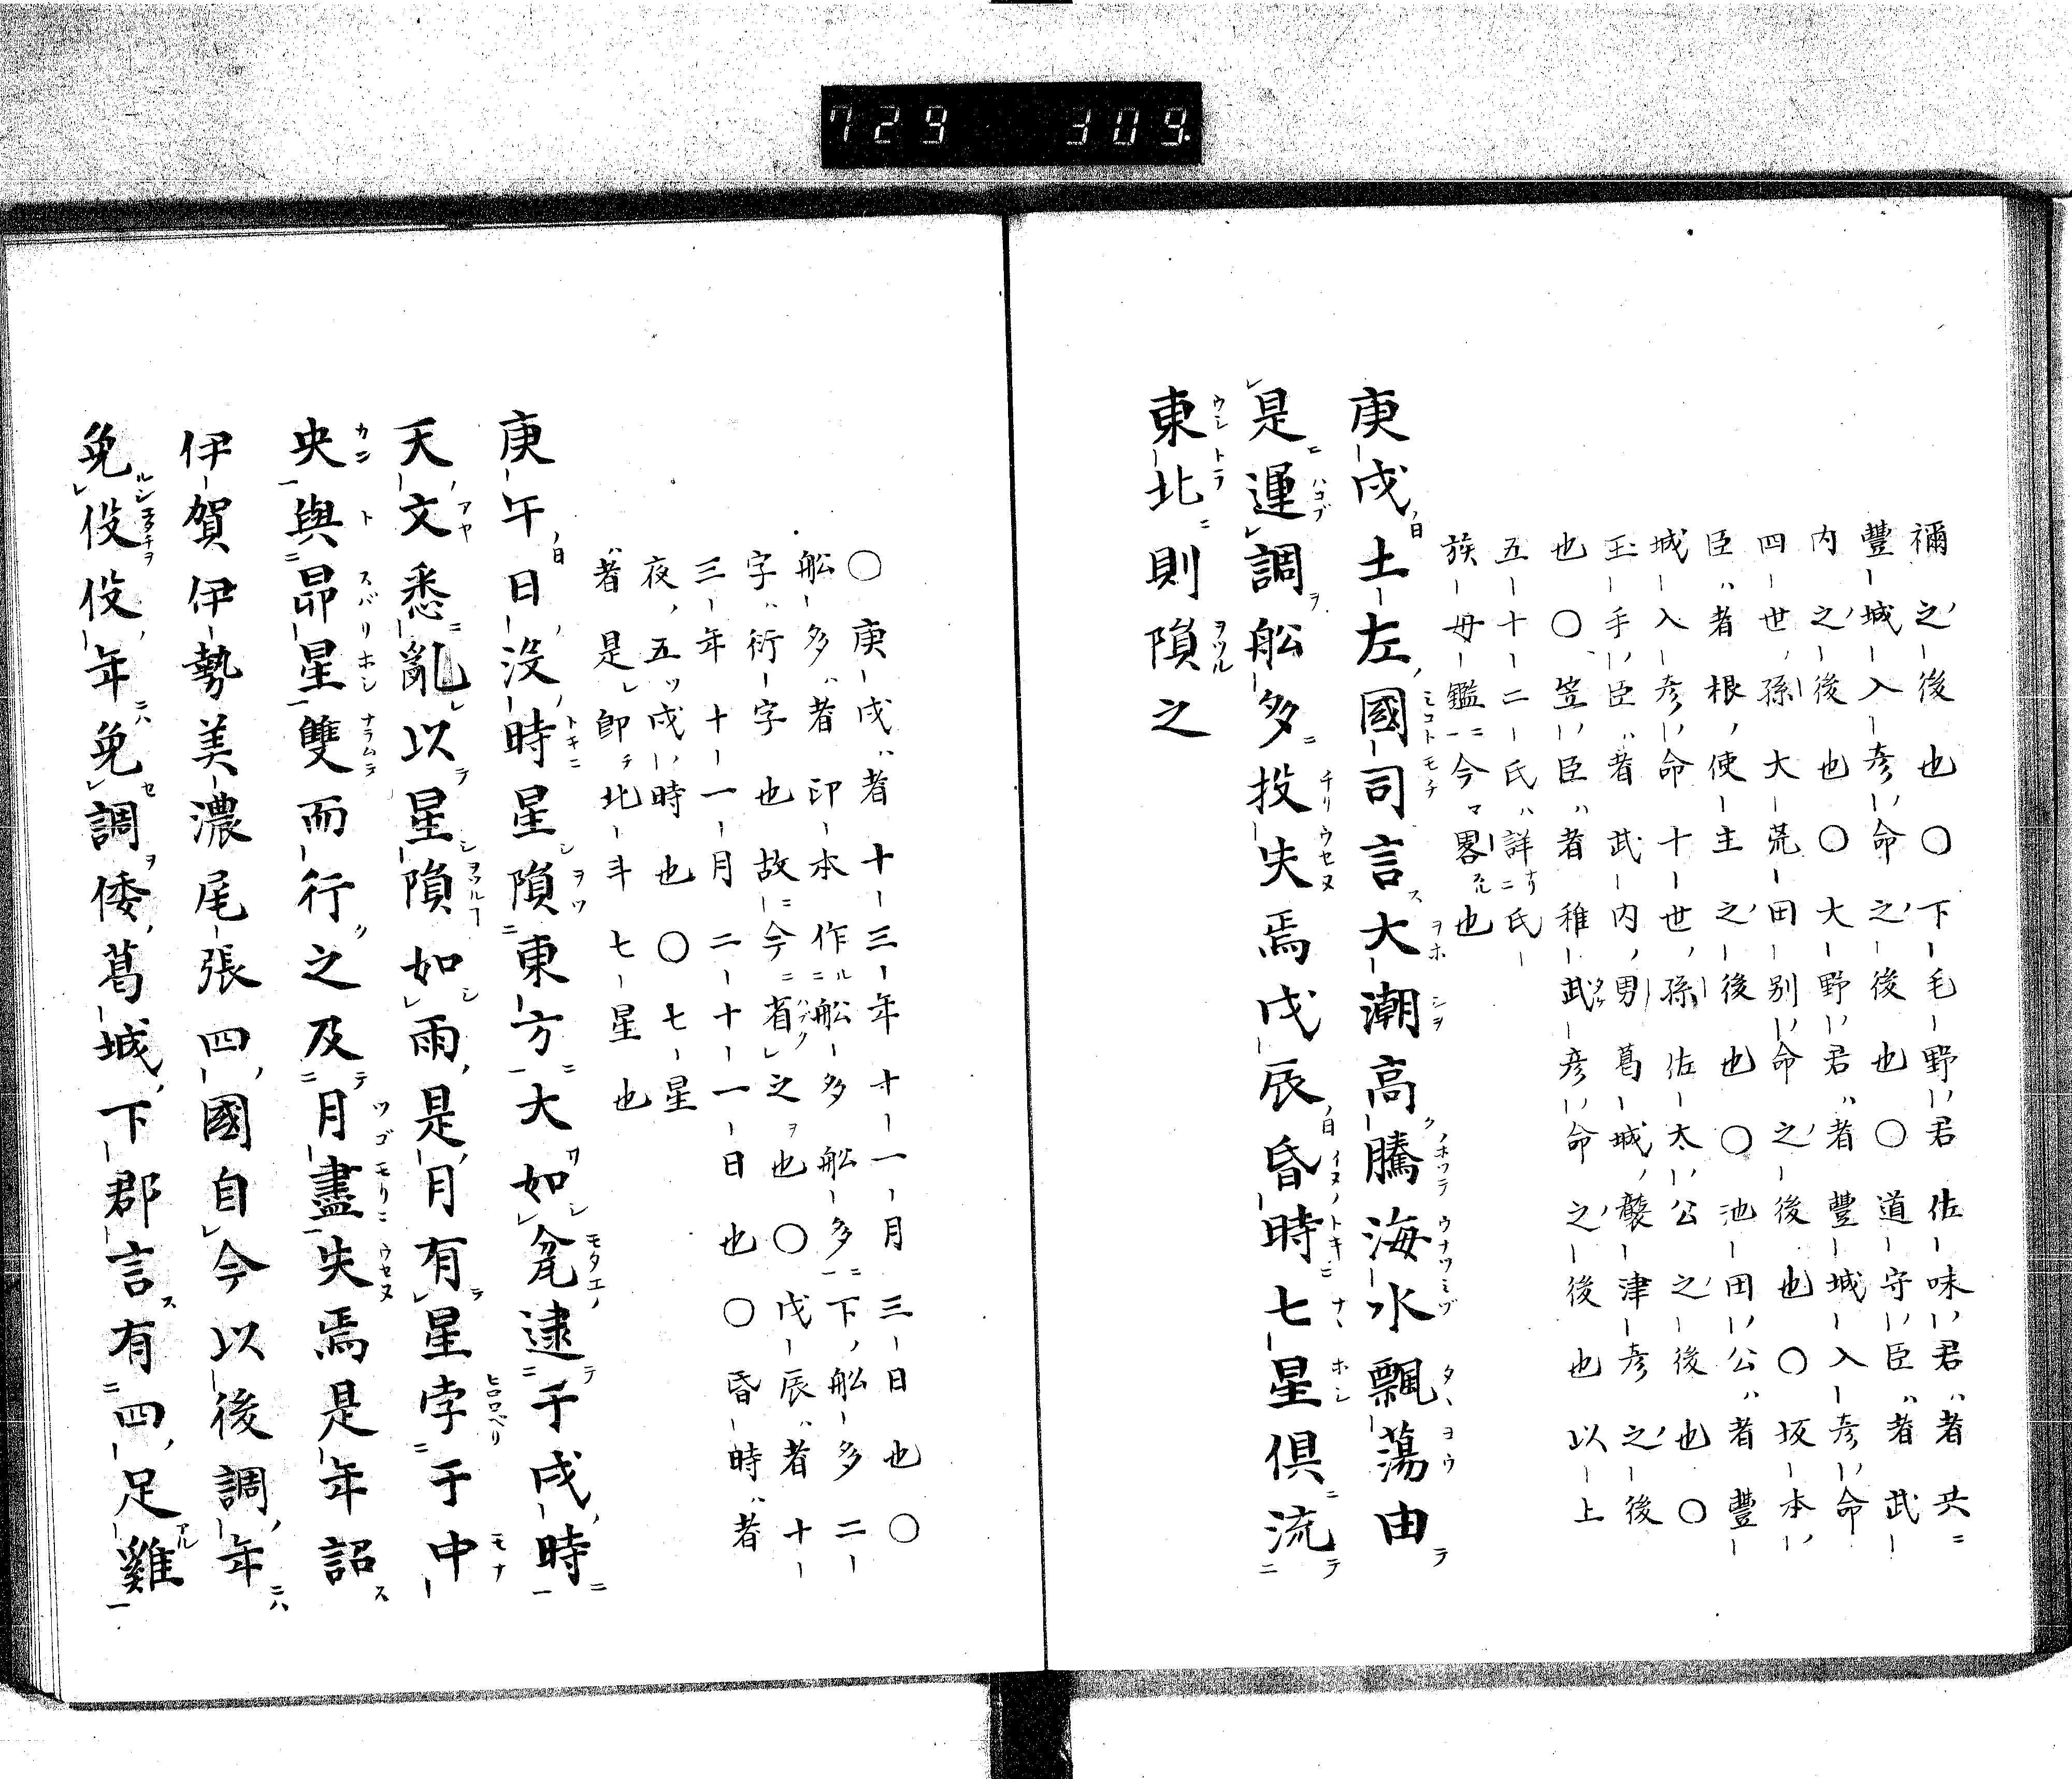 729 309
禰之後也〇下毛野君佐味君者共
豐城入彦命之後也〇道守臣者武
内之後也〇大野君者豐城入彦命
四世孫大荒田別命之後也〇坂本
臣者根使主之後也〇池田公者豐
城入彦命十世孫佐太公之後也〇
玉手臣者武内男葛城襲津彦之後
也〇笠臣者稚武彦命之後也以上
五十二氏ハ詳ナリ氏
族母鑑ニ今マ畧ス也
庚戌土左國司言大潮高騰海水飄蕩由
是運調舩多投失焉戊辰昏時七星倶流
東北則隕之
〇庚戌ハ者十三年十一月三日也〇
舩多ハ者印本作ル舩多舩多下舩多二
字ハ衍字也故ニ今省之ヲ也〇戊辰ハ者十
三年十一月二十一日也〇昏時ハ者
夜五ツ戌時也〇七星
ハ者是卽チ北斗七星也
庚午日没時星隕東方大如瓮逮于戌時
天文悉亂以星隕如雨是月有星孛于中
央與昴星雙而行之及月盡失焉是年詔
伊賀伊勢美濃尾張四國自今以後調年
免役役年免調倭葛城下郡言有四足雞